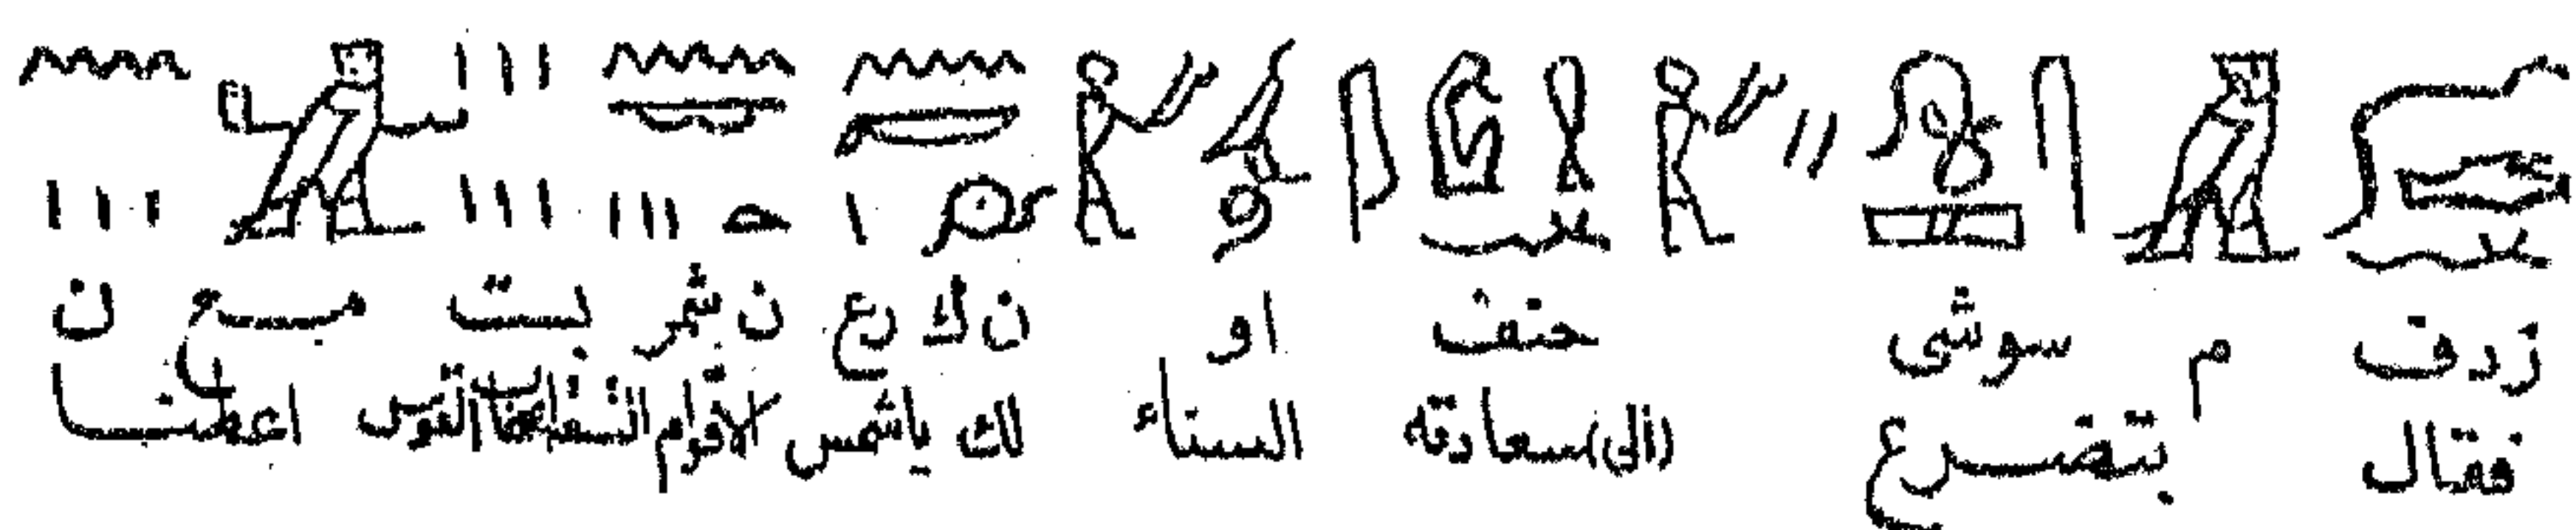 زدف م سوشى حنف او ن ك رع ن شمر بت مع ن
فقال بتضرع (الى) سعادته السناء لك ياشمس الاقوام القوس اعطنا